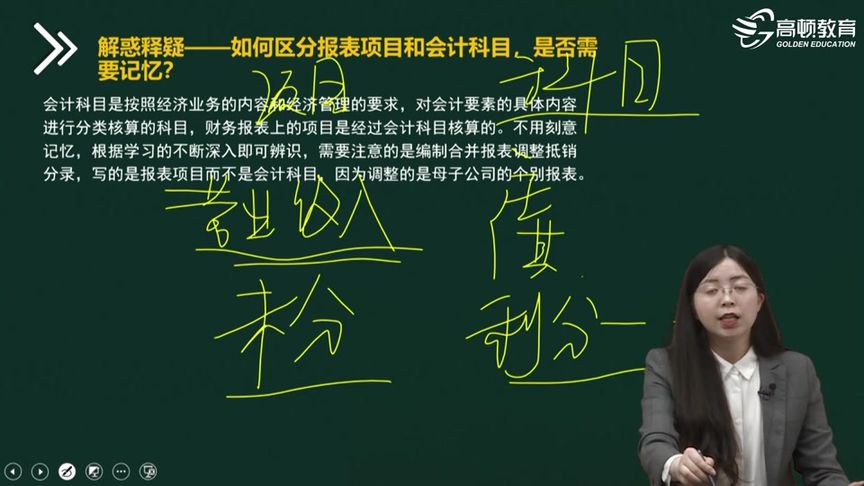 高顿教育
GOLDEN EDUCATION
解惑释疑——如何区分报表项目和会计科目，是否需
要记忆？
项目
科目
会计科目是按照经济业务的内容和经济管理的要求，对会计要素的具体内容
进行分类核算的科目，财务报表上的项目是经过会计科目核算的。不用刻意
记忆，根据学习的不断深入即可辨识，需要注意的是编制合并报表调整抵销
分录，写的是报表项目而不是会计科目，因为调整的是母子公司的个别报表。
营业收入
未分
利分一